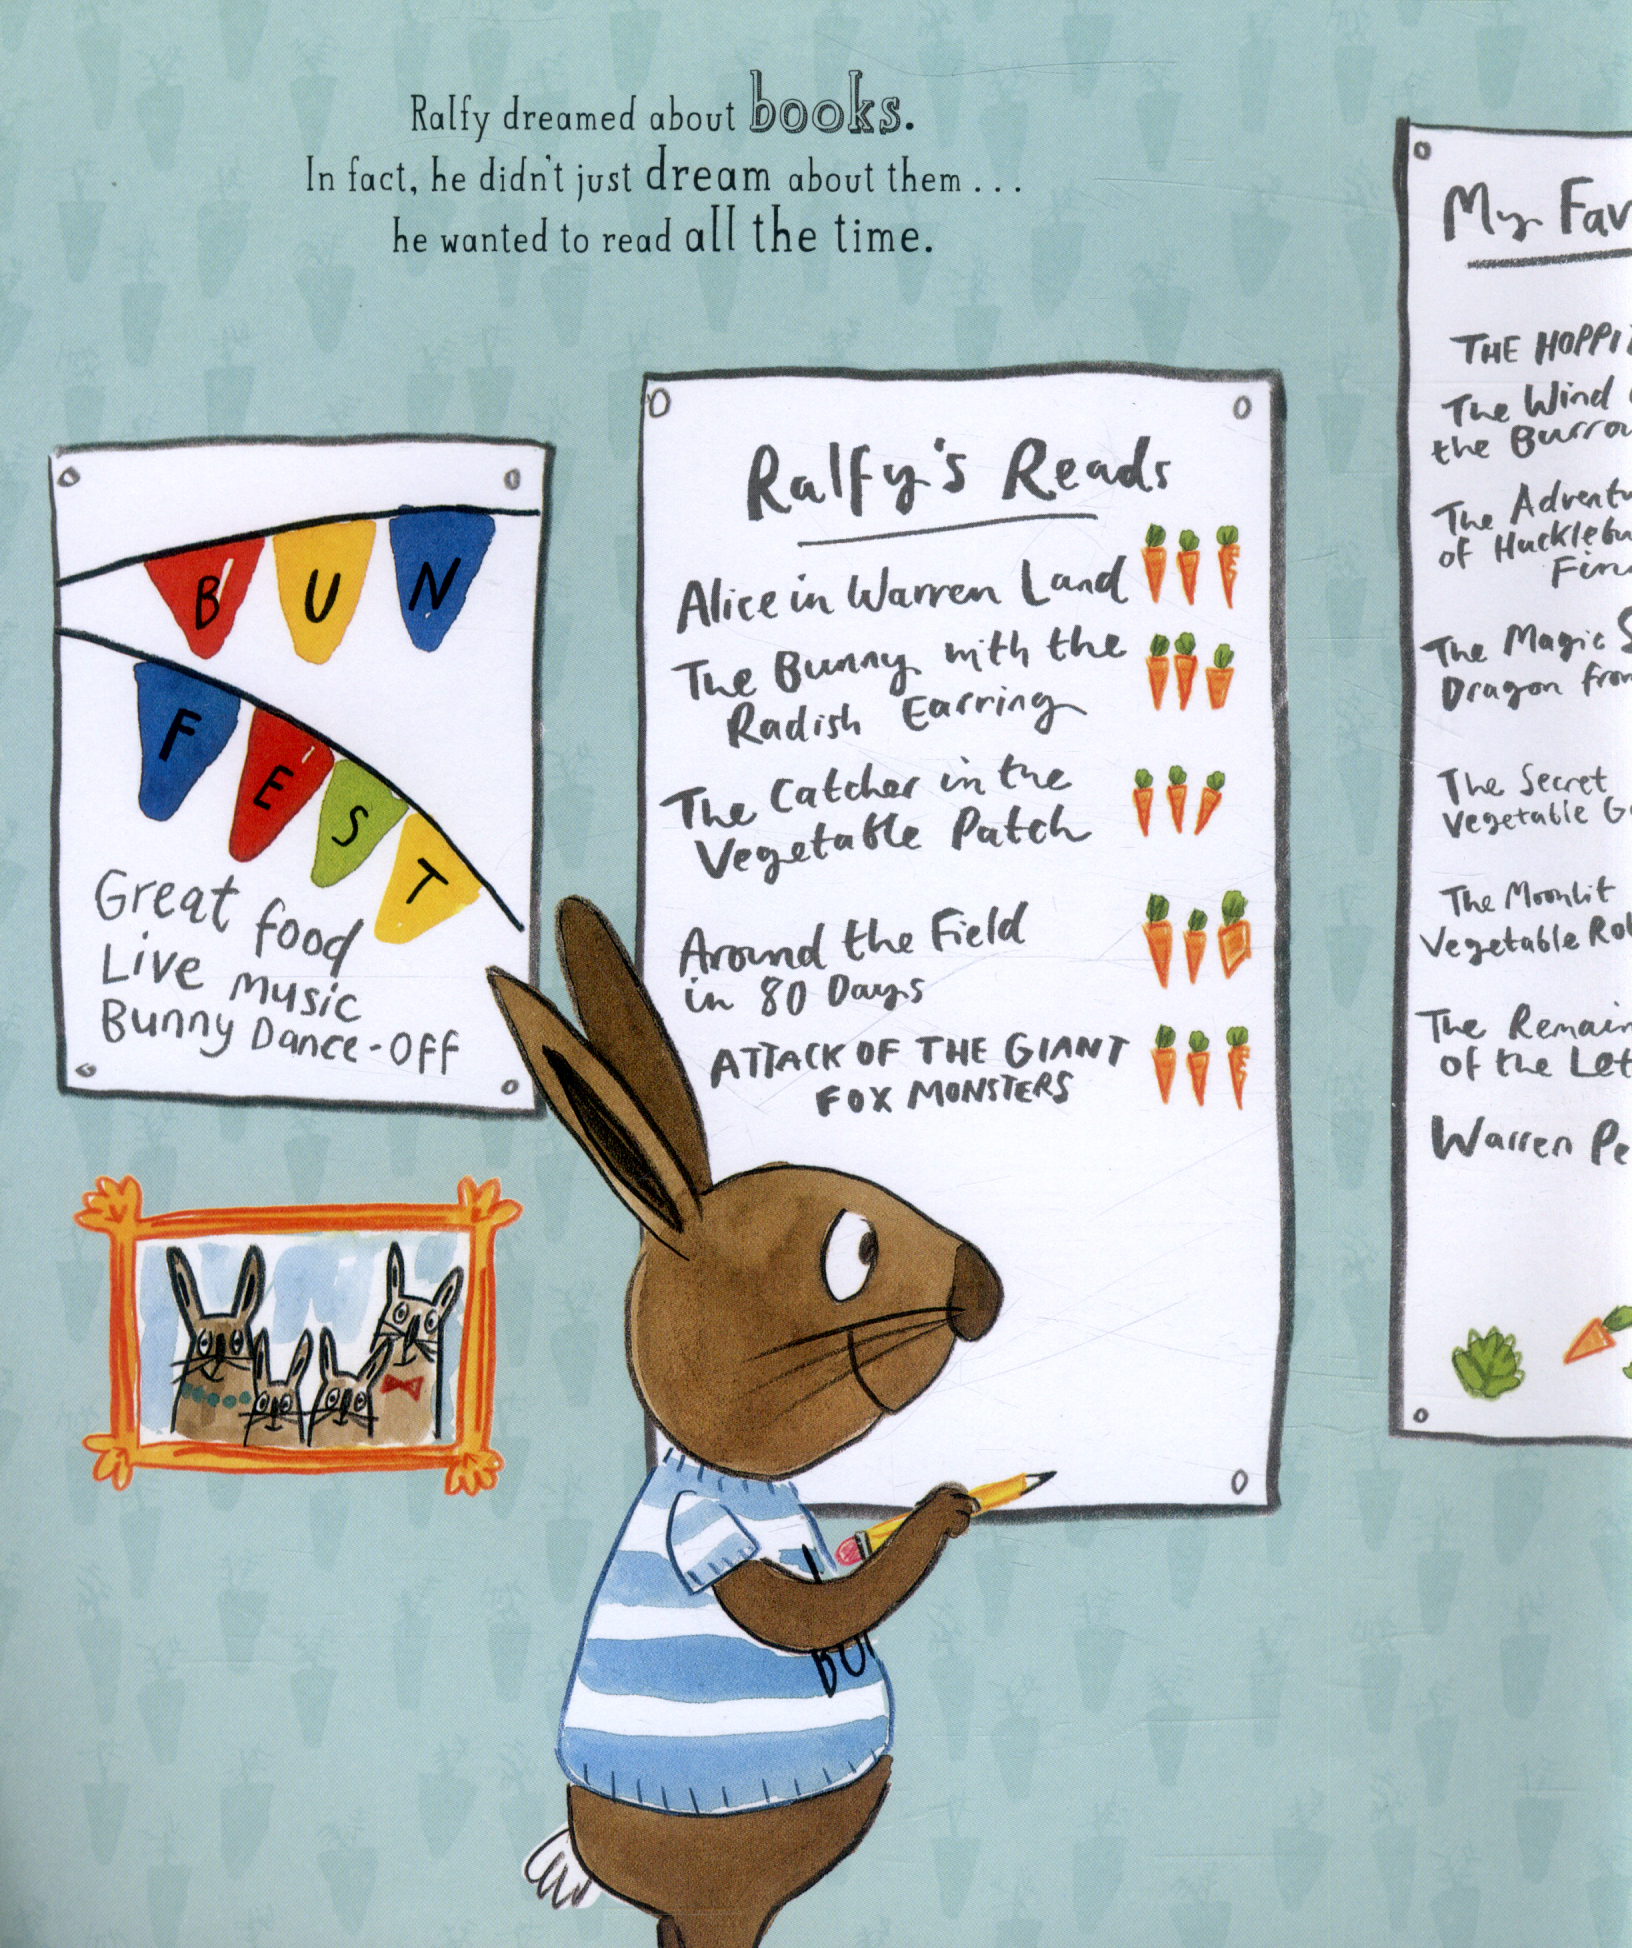 Ralfy dreamed about books.
In fact, he didn't just dream about them . . .
he wanted to read all the time.
BUN
FEST
Great food
Live music
Bunny Dance-Off
Ralfy's Reads
Alice in Warren Land
The Bunny with the
Radish Earring
The Catcher in the
Vegetable Patch
Around the Field
in 80 Days
ATTACK OF THE GIANT
FOX MONSTERS
My
THE
The Wind
the
The
of
The Magic
Dragon
The Secret
Vegetable
The Moonlit
Vegetable
The
of the
Warren